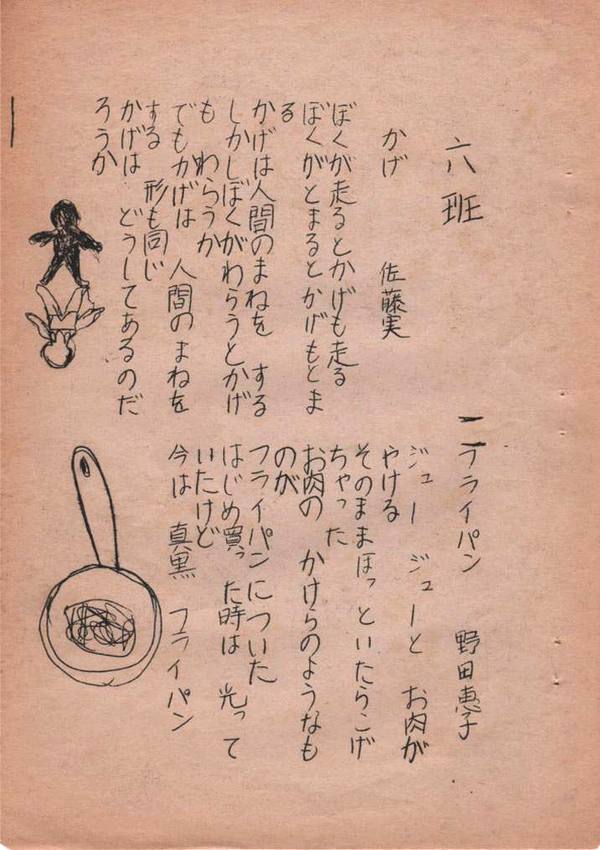 六班
かげ　佐藤実
ぼくが走るとかげも走る
ぼくがとまるとかげもとま
る
かげは人間のまねを　する
しかしぼくがわらうとかげ
も　わらうか
でもかげは　人間のまねを
する　形も同じ
かげは　どうしてあるのだ
ろうか
フライパン　野田恵子
ジュー　ジューと　お肉が
やける
そのままほっといたらこげ
ちゃった
お肉の　かけらのようなも
のが
フライパンについた
はじめ買った時は　光って
いたけど
今は　真黒　フライパン